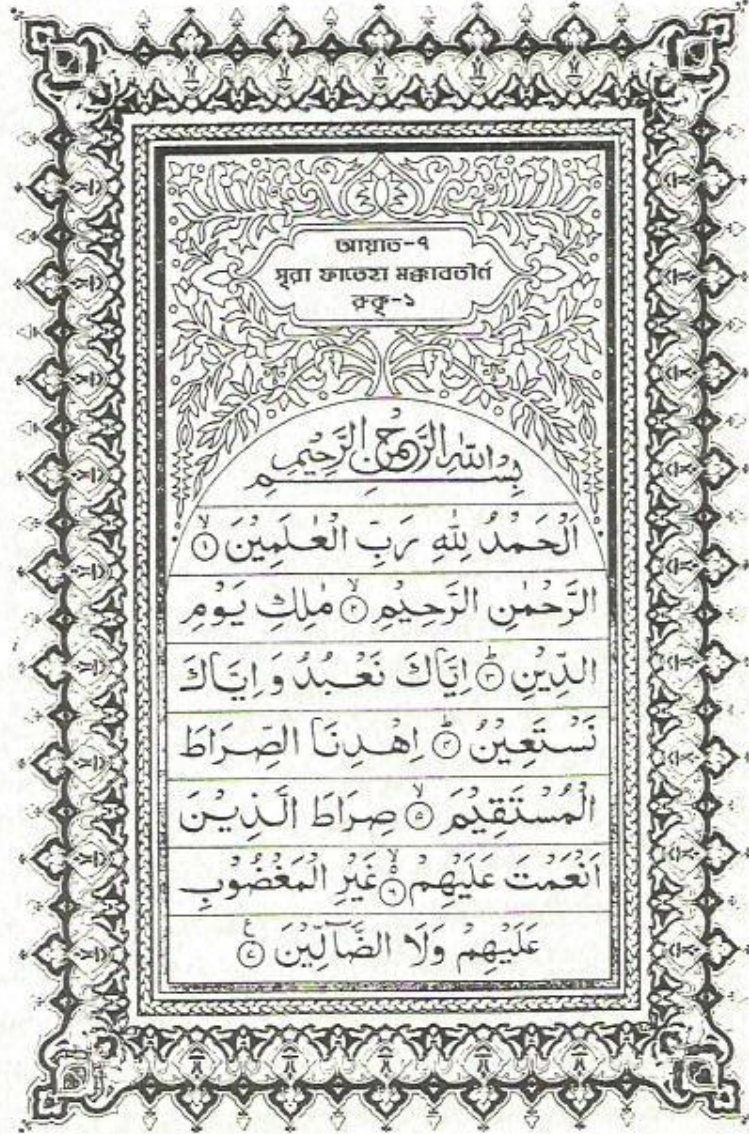 আয়াত-৭
সূরা ফাতেহা মক্কাবতীর্ণ
রুকু-১
بِسْمِ اللّٰهِ الرَّحْمٰنِ الرَّحِيْمِ
اَلْحَمْدُ لِلّٰهِ رَبِّ الْعٰلَمِيْنَ ۙ﴿۱﴾
الرَّحْمٰنِ الرَّحِيْمِ ۙ﴿۲﴾ مٰلِكِ يَوْمِ
الدِّيْنِ ؕ﴿۳﴾ اِيَّاكَ نَعْبُدُ وَ اِيَّاكَ
نَسْتَعِيْنُ ؕ﴿۴﴾ اِهْدِنَا الصِّرَاطَ
الْمُسْتَقِيْمَ ۙ﴿۵﴾ صِرَاطَ الَّذِيْنَ
اَنْعَمْتَ عَلَيْهِمْ ۙ﴿۶﴾ غَيْرِ الْمَغْضُوْبِ
عَلَيْهِمْ وَلَا الضَّآلِّيْنَ ﴿۷﴾ ع